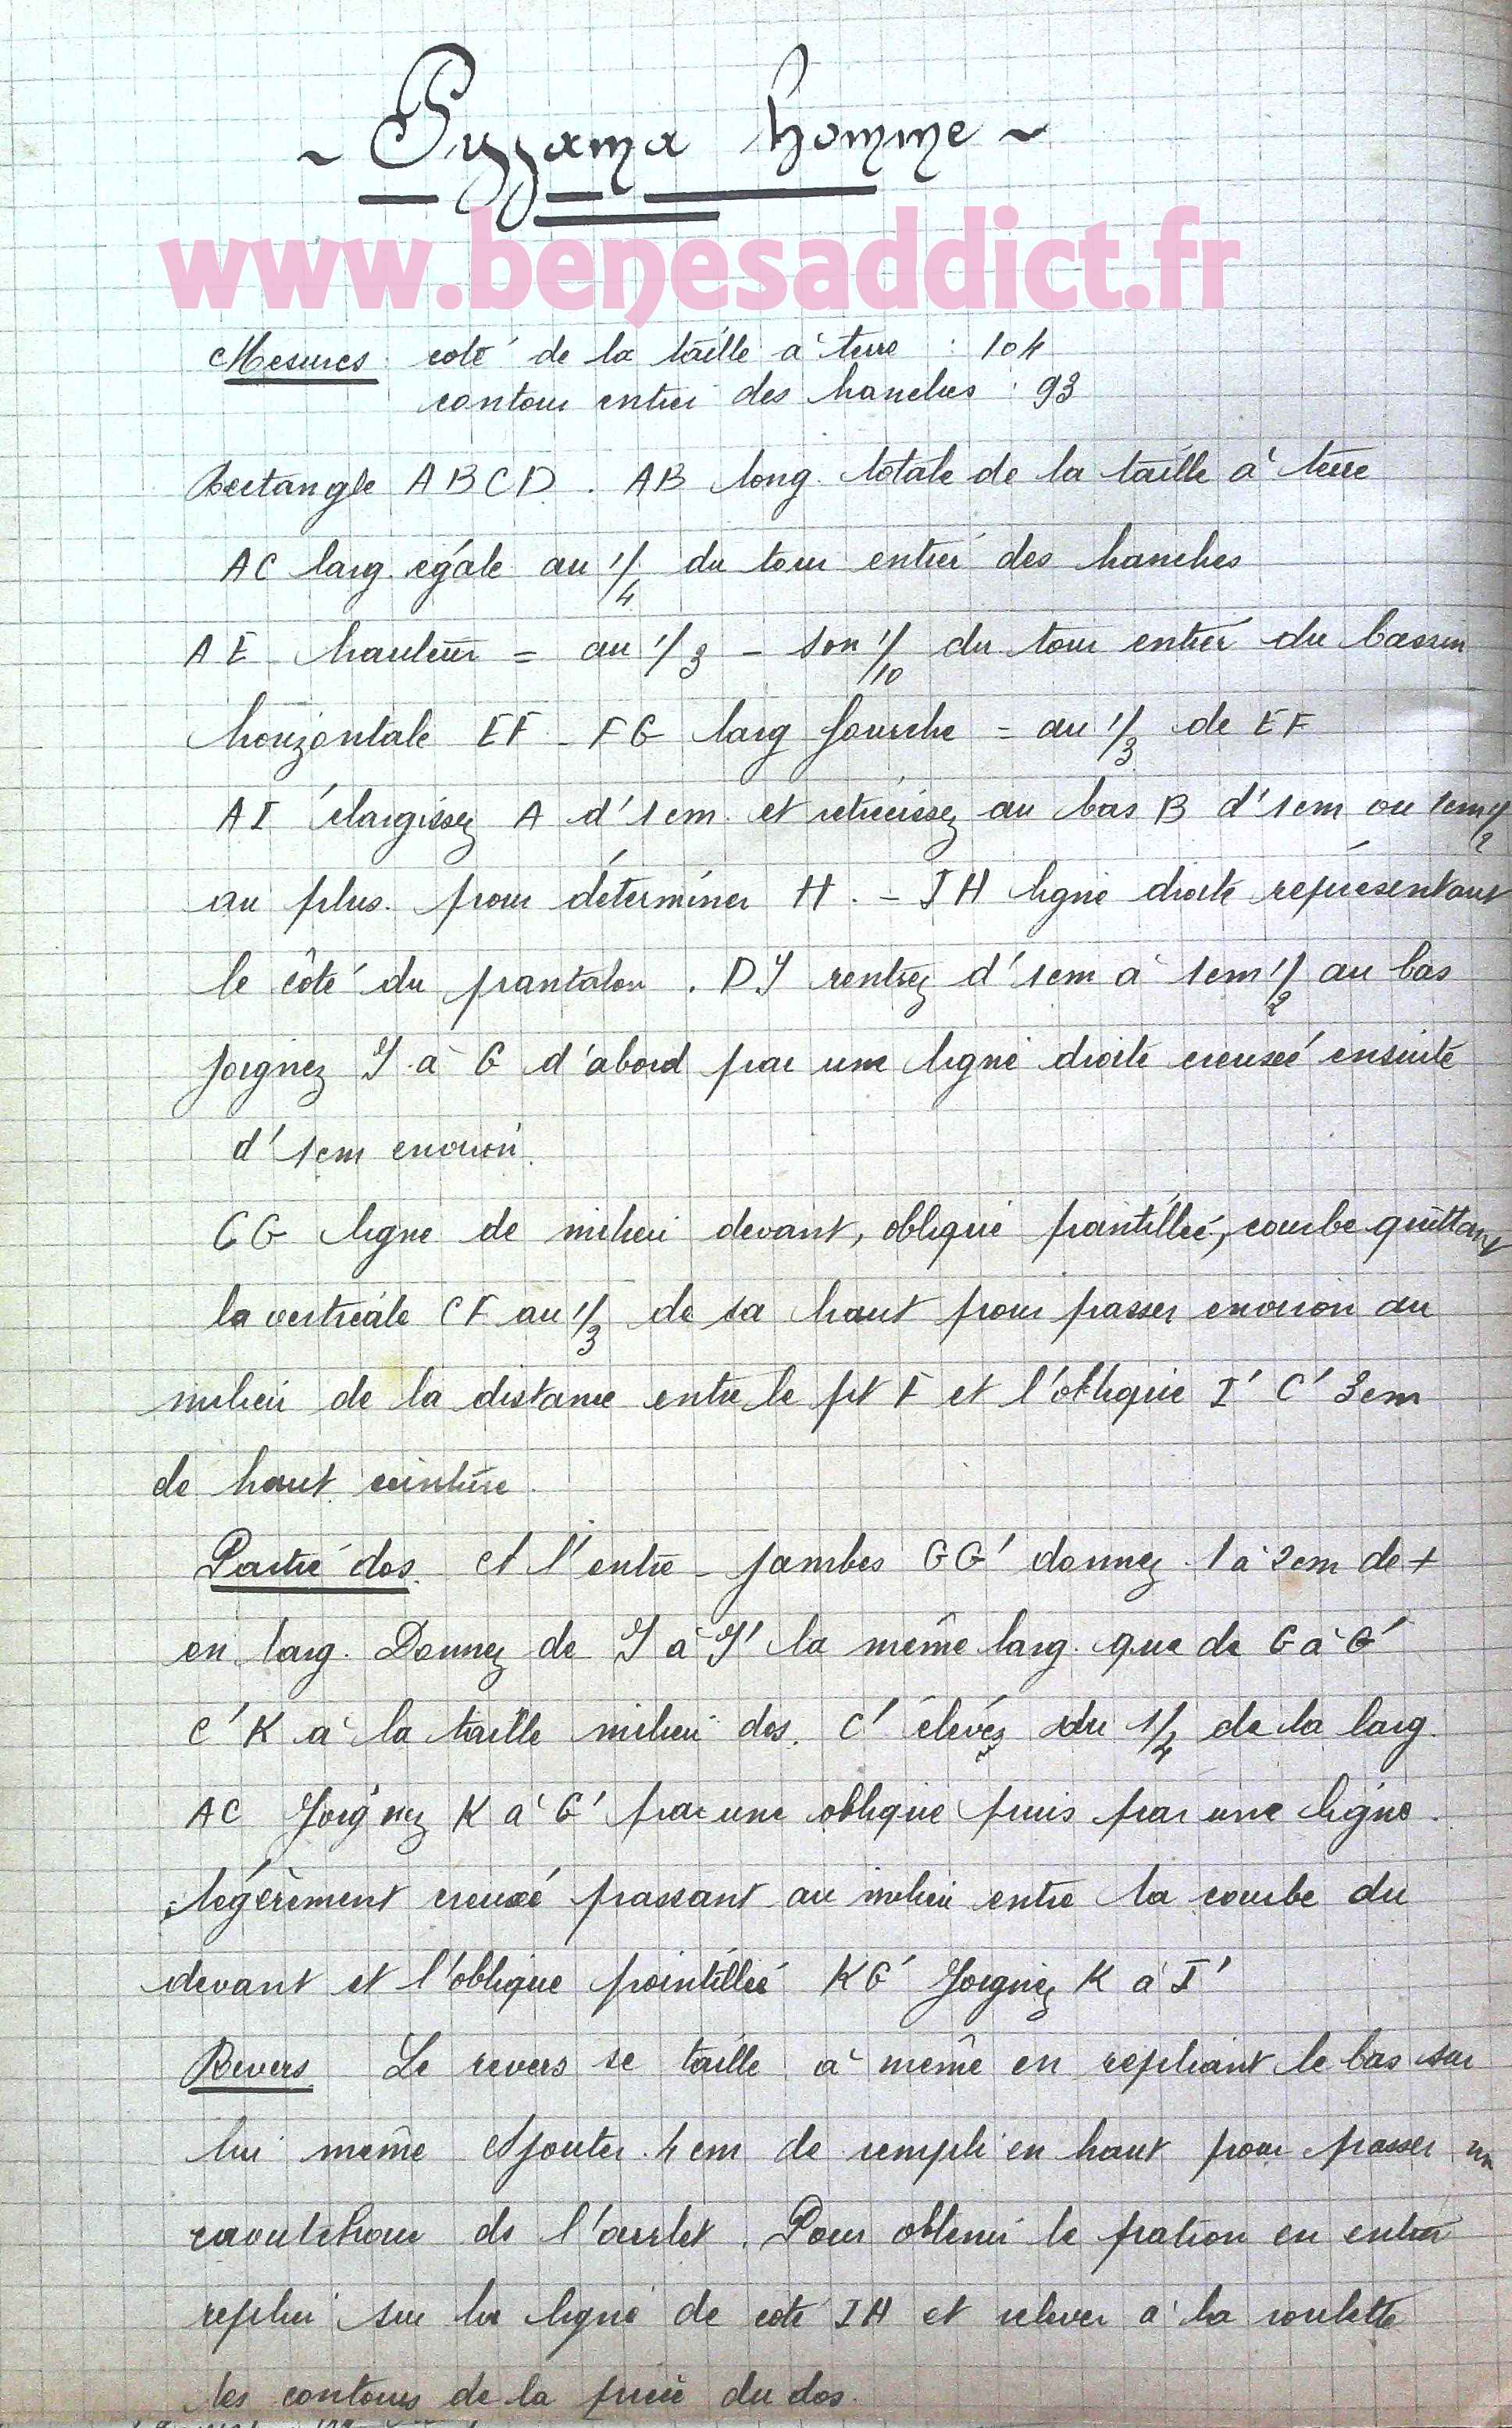 ~ Pyjama homme ~
www.benesaddict.fr
Mesures : coté de la taille à terre : 104
contour entier des hanches : 93
Rectangle ABCD. AB long. totale de la taille à terre
AC larg. égale au 1/4 du tour entier des hanches
AE hauteur = au 1/3 - son 1/10 du tour entier du bassin
horizontale EF - FG larg fourche = au 1/3 de EF
AI élargissez A d'1cm. et rétrécissez au bas B d'1cm ou 1cm 1/2
au plus. pour déterminer H. - IH ligne droite représentant
le côté du pantalon. DJ rentrez d'1cm à 1cm 1/2 au bas
joignez J à G d'abord par une ligne droite creusée ensuite
d'1cm environ.
CG ligne de milieu devant, oblique pointillée, courbe quittant
la verticale CF au 1/3 de sa haut pour passer environ au
milieu de la distance entre le pt F et l'oblique I' C' 3cm
de haut ceinture.
Partie dos. A l'entre-jambes GG' donnez 1 à 2cm de +
en larg. Donnez de J à J' la même larg. que de G à G'
C'K à la taille milieu dos. C' élevez du 1/4 de la larg.
AC Joignez K à G' par une oblique puis par une ligne
légèrement creusé passant au milieu entre la courbe du
devant et l'oblique pointillée KG' Joignez K à I'
Revers Le revers se taille à même en repliant le bas sur
lui même Ajouter 4cm de rempli en haut pour passer un
caoutchouc ds l'ourlet. Pour obtenir le patron en entier
replier sur la ligne de coté IH et relever à la roulette
les contours de la pièce du dos.